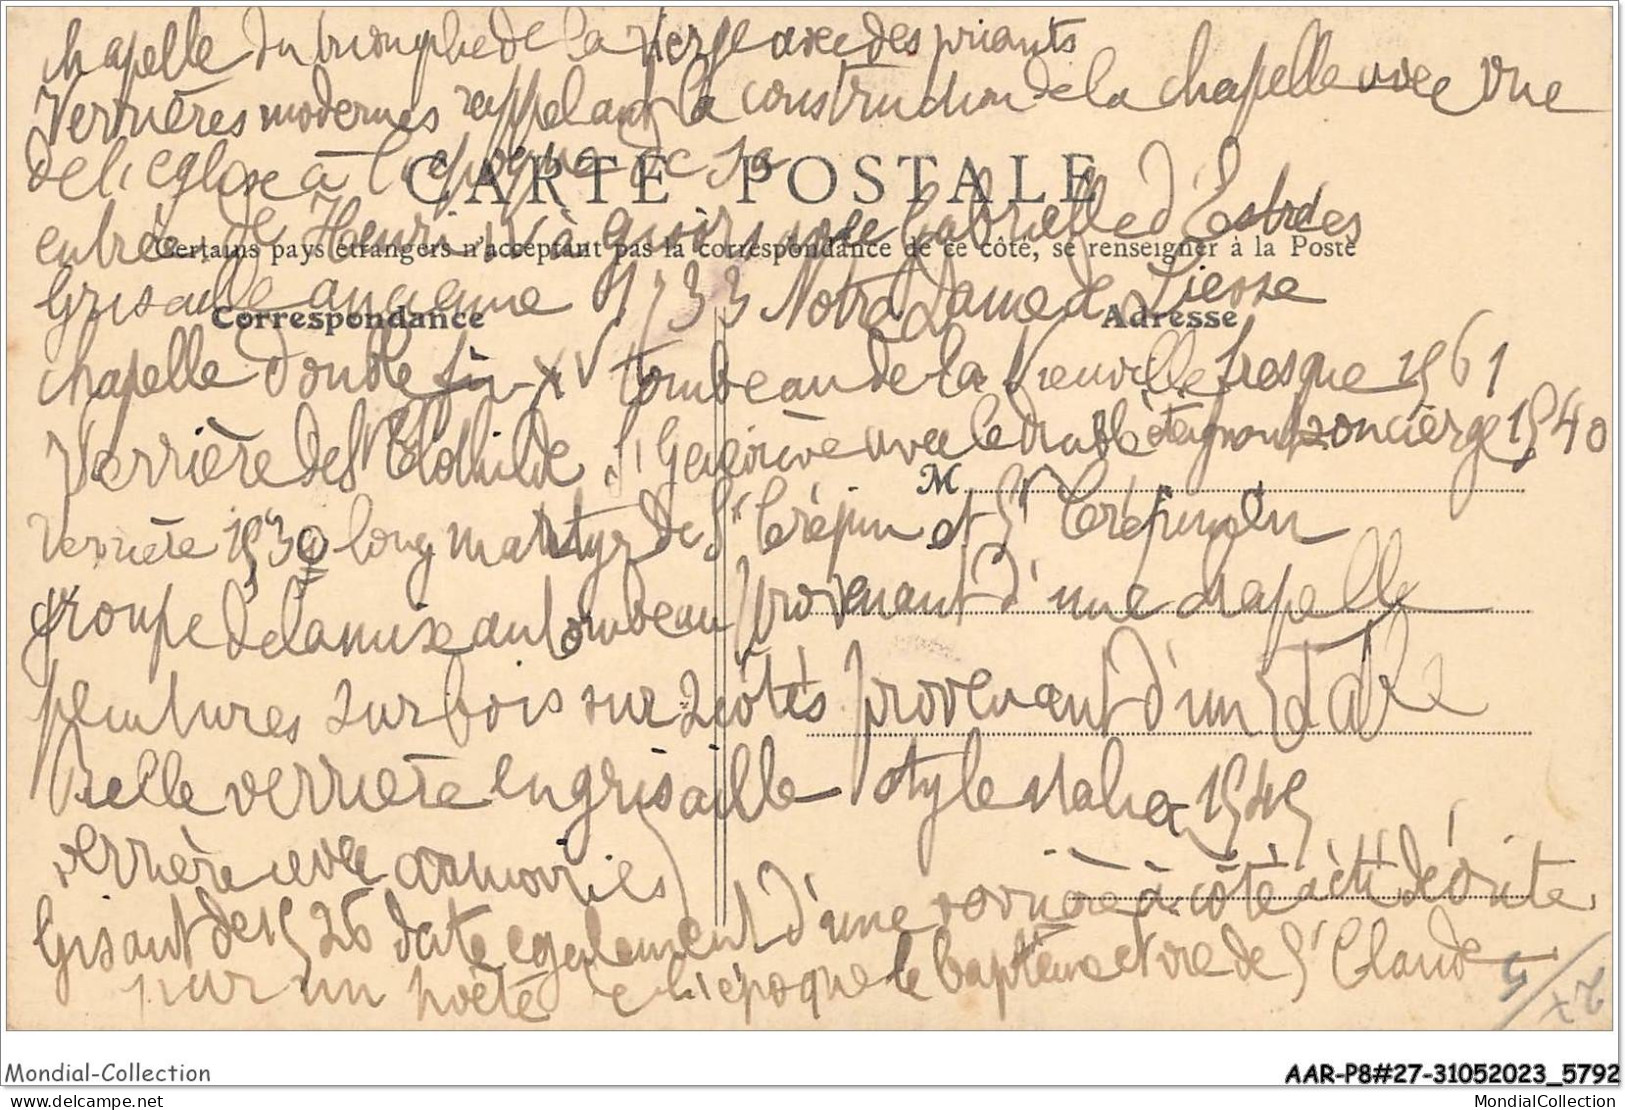 chapelle du triomphe de la vierge avec des priants
Verrières modernes rappelant la construction de la chapelle avec vue
de l'eglise à l'epoque de sa
CARTE POSTALE
entrée de Henri IV à Gabrielle d'Estrées
Certains pays étrangers n'acceptant pas la correspondance de ce côté, se renseigner à la Poste
Grisaille ancienne 1533 Notre Dame de Liesse
Correspondance
Adresse
chapelle double fin XV tombeau de la Vieuville fresque 1561
Verrière de Ste Clothilde Ste Geneviève avec le diable éteignant son cierge 1540
M
verrière 1530 long martyr de St Crépin et St Crépinien
groupe de la mise au tombeau provenant d'une chapelle
peintures sur bois sur 2 côtés provenant d'un retable
Belle verrière en grisaille style italien 1545
verrière avec armoiries
Gisant de 1526 date egalement d'une verrière à côté a été décrite
par un poète de l'époque le baptême et vie de St Claude
Mondial-Collection
AAR-P8#27-31052023_5792
www.delcampe.net
MondialCollection